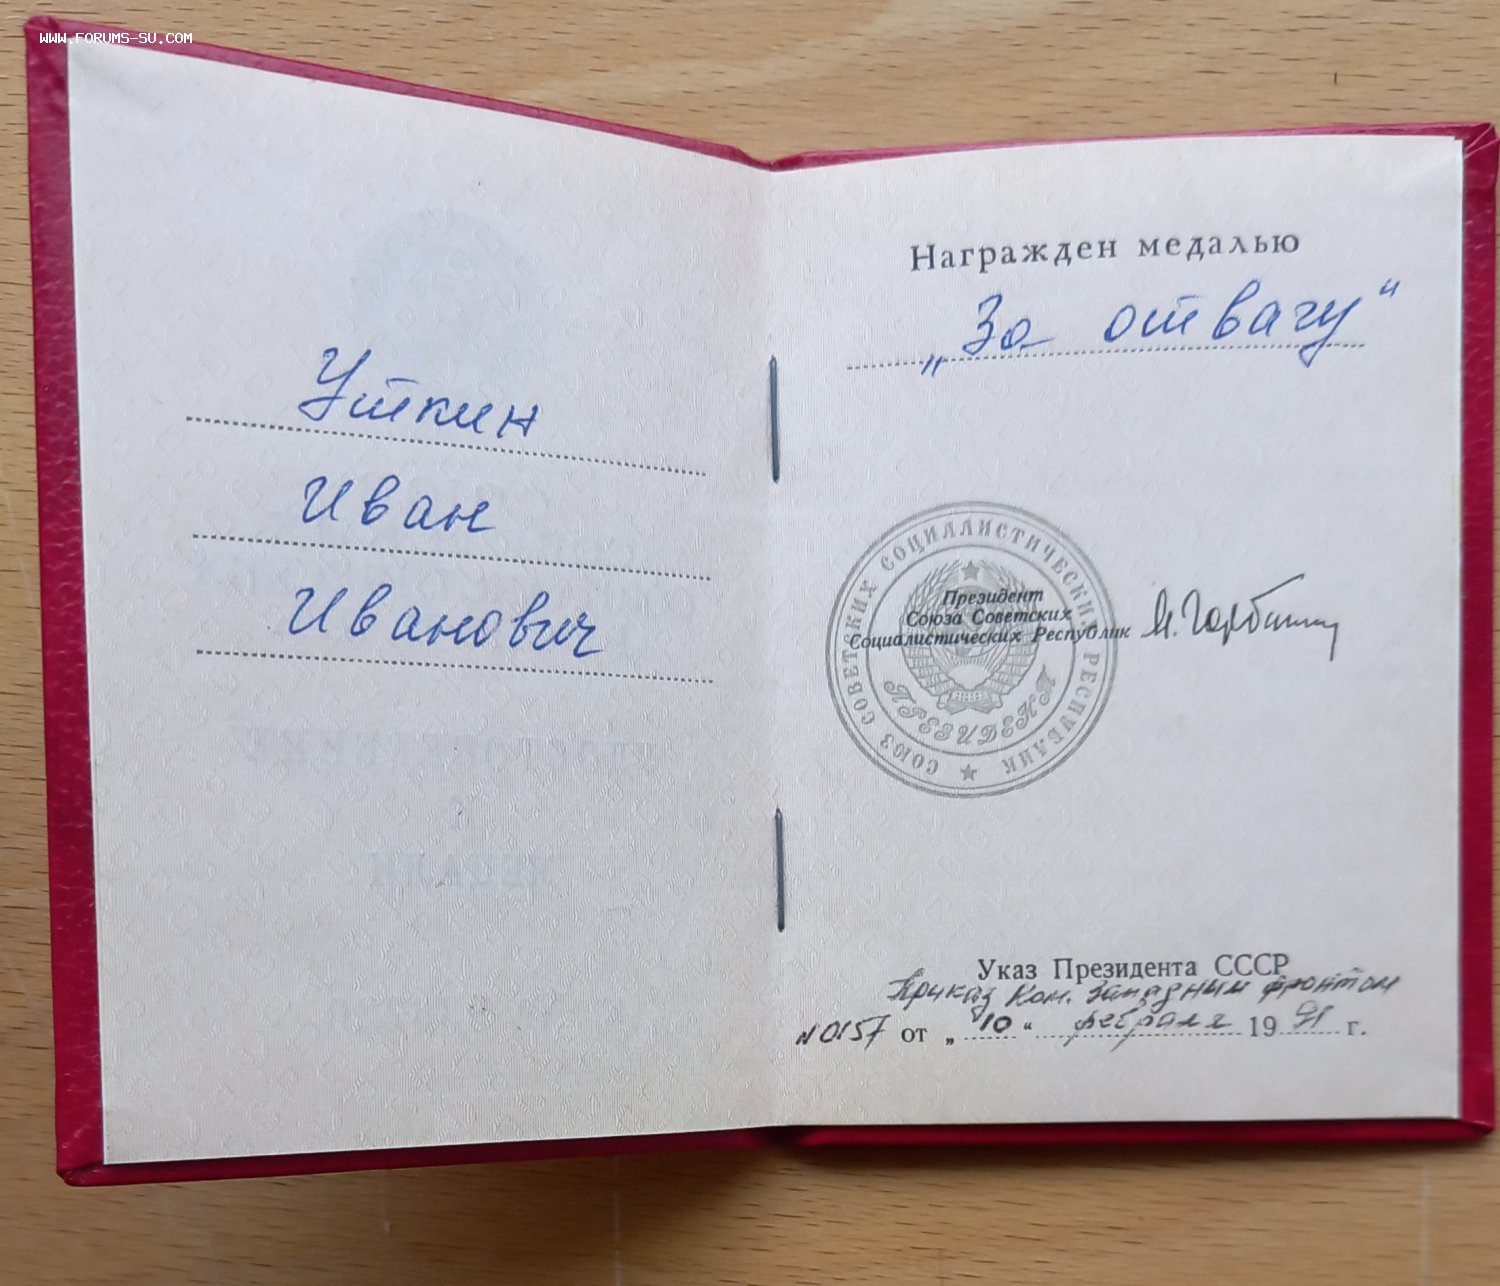 WWW.FORUMS-SU.COM
Уткин
Иван
Иванович
Награжден медалью
„За отвагу“
СОЮЗ СОВЕТСКИХ СОЦИАЛИСТИЧЕСКИХ РЕСПУБЛИК
Президент
Союза Советских
Социалистических Республик М. Горбачев
ПРЕЗИДЕНТ
Указ Президента СССР
Приказ Ком. Западным фронтом
N 0157 от „10“ февраля 1991 г.